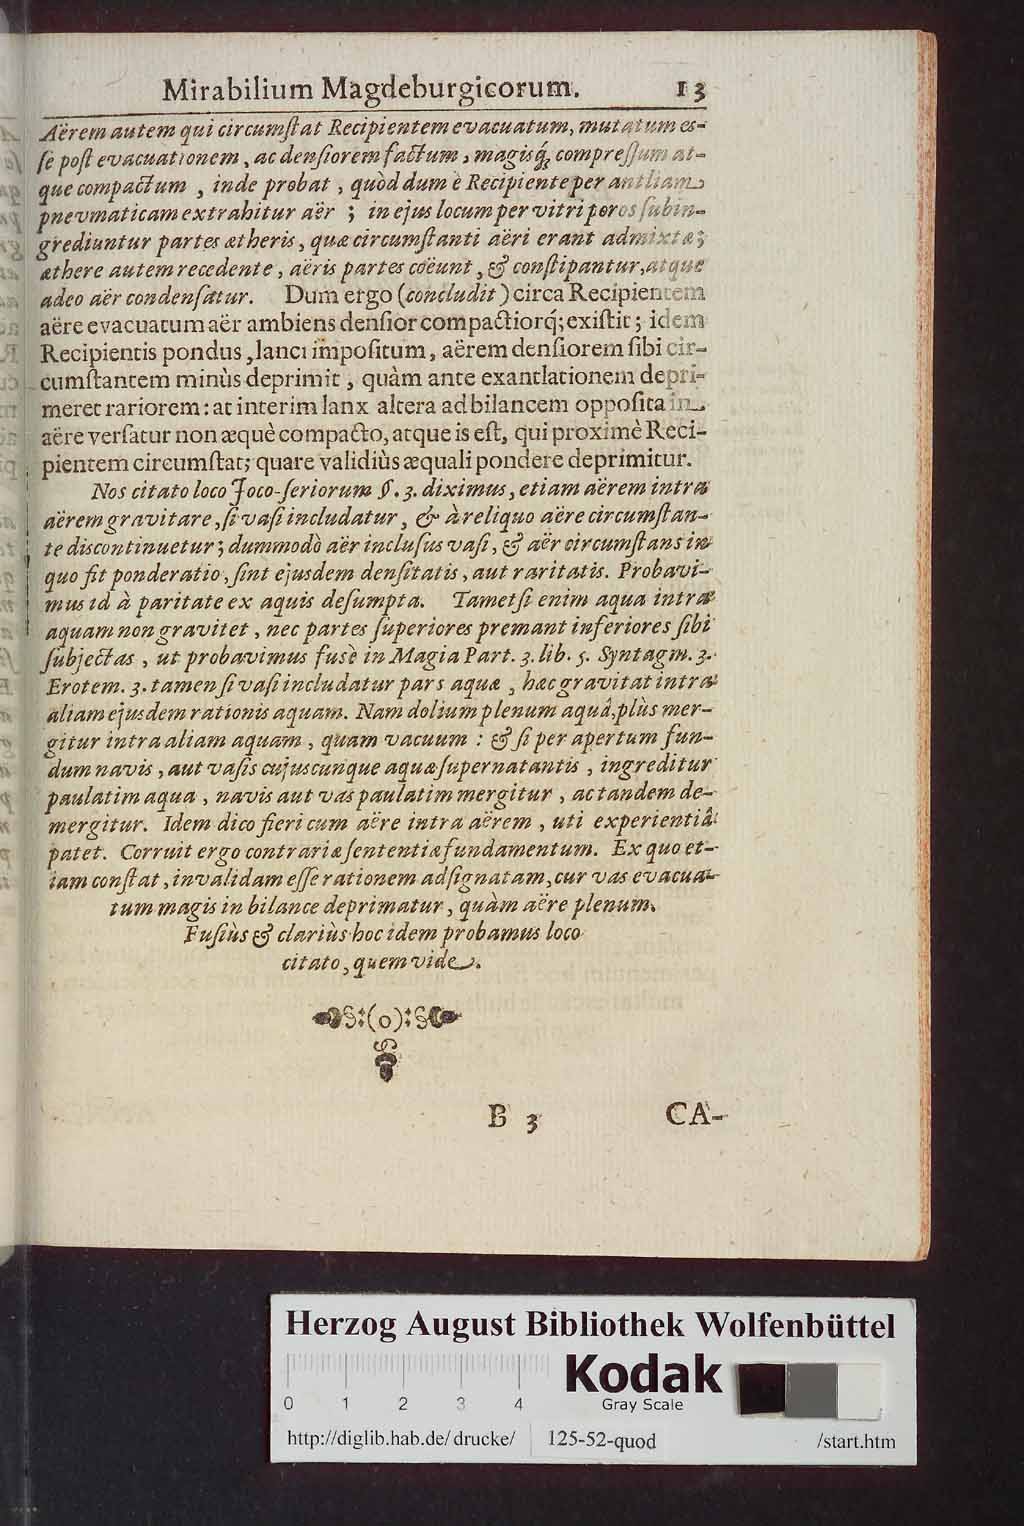 Mirabilium Magdeburgicorum. 13
Aërem autem qui circumſtat Recipientem evacuatum, mutatum es-
ſe poſt evacuationem, ac denſiorem factum, magisq́; compreſſum at-
que compactum, inde probat, quòd dum è Recipiente per antliam
pnevmaticam extrahitur aër; in ejus locum per vitri poros ſubin-
grediuntur partes ætheris, quæ circumſtanti aëri erant admixtæ;
æthere autem recedente, aëris partes coëunt, & conſtipantur, atque
adeo aër condenſatur. Dum ergo (concludit) circa Recipientem
aëre evacuatum aër ambiens denſior compactiorq́; exiſtit; idem
Recipientis pondus, lanci impoſitum, aërem denſiorem ſibi cir-
cumſtantem minùs deprimit, quàm ante exantlationem depri-
meret rariorem: at interim lanx altera ad bilancem oppoſita in
aëre verſatur non æquè compacto, atque is eſt, qui proximè Reci-
pientem circumſtat; quare validiùs æquali pondere deprimitur.
Nos citato loco Joco-ſeriorum §. 3. diximus, etiam aërem intra
aërem gravitare, ſi vaſi includatur, & à reliquo aëre circumſtan-
te discontinuetur; dummodò aër incluſus vaſi, & aër circumſtans in
quo fit ponderatio, ſint ejusdem denſitatis, aut raritatis. Probavi-
mus id à paritate ex aquis deſumpta. Tametſi enim aqua intra
aquam non gravitet, nec partes ſuperiores premant inferiores ſibi
ſubjectas, ut probavimus fusè in Magia Part. 3. lib. 5. Syntagm. 3.
Erotem. 3. tamen ſi vaſi includatur pars aquæ, hæc gravitat intra
aliam ejusdem rationis aquam. Nam dolium plenum aquâ, plùs mer-
gitur intra aliam aquam, quam vacuum: & ſi per apertum fun-
dum navis, aut vaſis cujuscunque aquæ ſupernatantis, ingreditur
paulatim aqua, navis aut vas paulatim mergitur, ac tandem de-
mergitur. Idem dico fieri cum aëre intra aërem, uti experientiâ
patet. Corruit ergo contrariæ ſententiæ fundamentum. Ex quo et-
iam conſtat, invalidam eſſe rationem adſignatam, cur vas evacua-
tum magis in bilance deprimatur, quàm aëre plenum.
Fuſiùs & clariùs hoc idem probamus loco
citato, quem vide.
§:(o):§
B 3 CA-
Herzog August Bibliothek Wolfenbüttel
Kodak
Gray Scale
0 1 2 3 4
http://diglib.hab.de/drucke/ 125-52-quod /start.htm